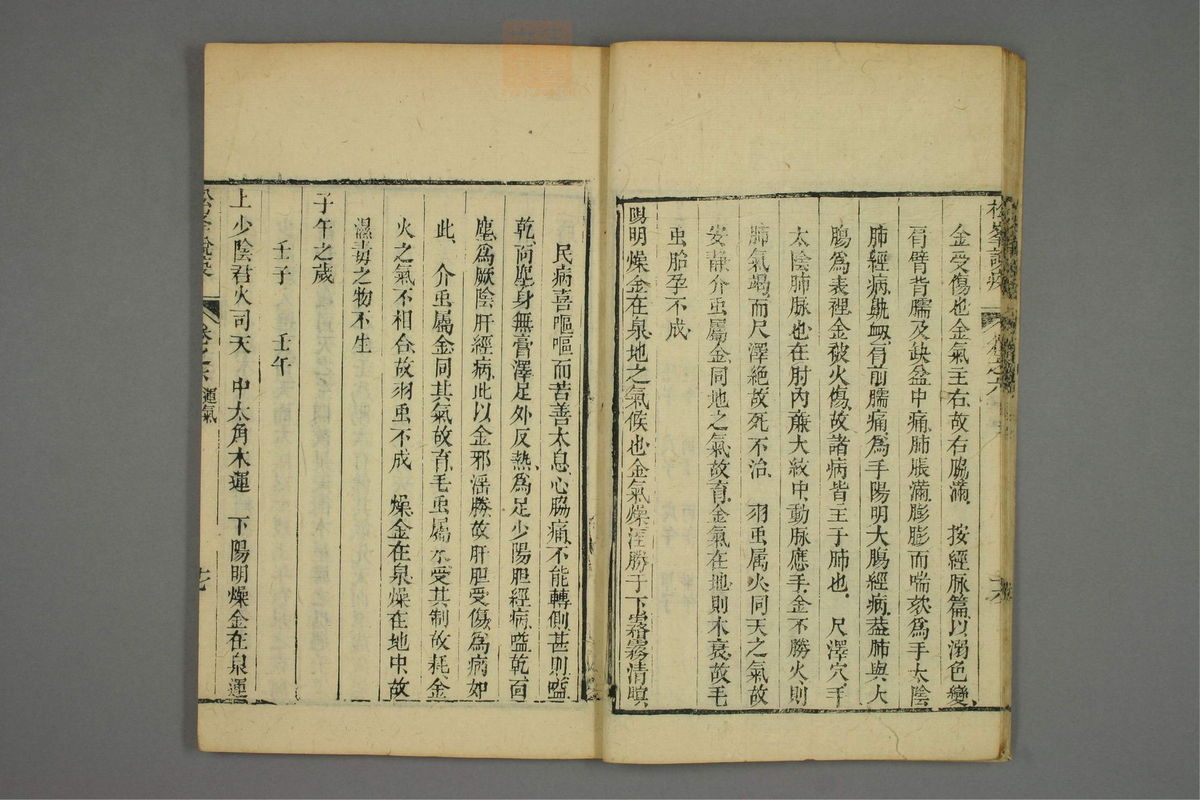 松峯說疫
卷之六
金受傷也金氣主右故右脇滿 按經脉篇以溺色變
肩臂背臑及缺盆中痛肺脹滿膨膨而喘欬為手太陰
肺經病鼽衂肩前臑痛為手陽明大腸經病葢肺與大
腸為表裡金被火傷故諸病皆主于肺也 尺澤穴手
太陰肺脉也在肘內亷大紋中動脉應手金不勝火則
肺氣竭而尺澤絶故死不治 羽虫属火同天之氣故
安靜介虫屬金同地之氣故育金氣在地則木衰故毛
虫胎孕不成
陽明燥金在泉地之氣候也金氣燥淫勝于下霿霧清暝
民病喜嘔嘔而苦善太息心脇痛不能轉側甚則嗌
乾面塵身無膏澤足外反熱為足少陽胆經病嗌乾面
塵為厥陰肝經病此以金邪淫勝故肝胆受傷為病如
此 介虫屬金同其氣故育毛虫屬木受其制故耗金
火之氣不相合故羽虫不成 燥金在泉燥在地中故
濕毒之物不生
子午之歲
壬子 壬午
上少陰君火司天 中太角木運 下陽明燥金在泉運
松峯說疫
卷之六 運氣